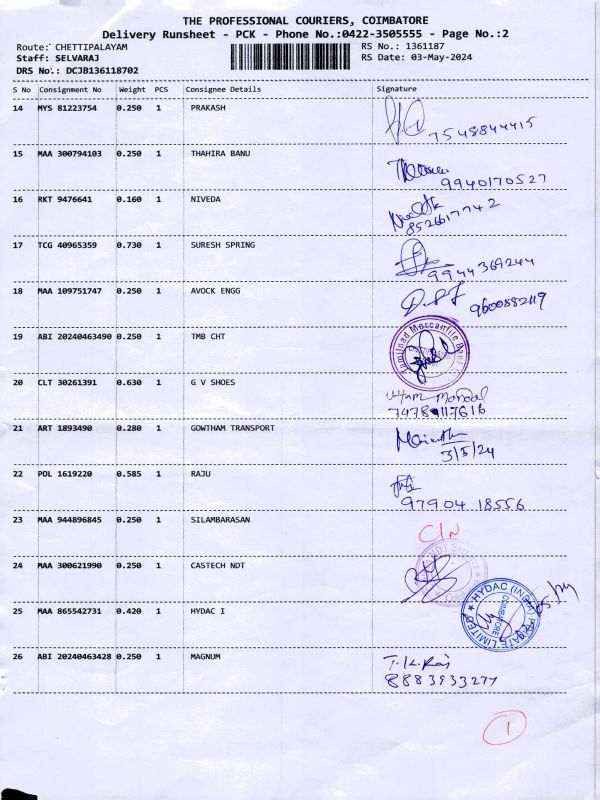 THE PROFESSIONAL COURIERS, COIMBATORE
Delivery Runsheet - PCK - Phone No.:0422-3505555 - Page No.:2
Route: CHETTIPALAYAM RS No.: 1361187
Staff: SELVARAJ RS Date: 03-May-2024
DRS No.: DCJB136118702
S No Consignment No Weight PCS Consignee Details Signature
14 MYS 81223754 0.250 1 PRAKASH
7548844415
15 MAA 300794103 0.250 1 THAHIRA BANU
9940170527
16 RKT 9476641 0.160 1 NIVEDA
8526617742
17 TCG 40965359 0.730 1 SURESH SPRING
9944369244
18 MAA 109751747 0.250 1 AVOCK ENGG
19 ABI 20240463490 0.250 1 TMB CHT
Tamilnad Mercantile Bank
20 CLT 30261391 0.630 1 G V SHOES
21 ART 1893490 0.280 1 GOWTHAM TRANSPORT
3/5/24
22 POL 1619220 0.585 1 RAJU
97904 18556
23 MAA 944896845 0.250 1 SILAMBARASAN
C/N
24 MAA 300621990 0.250 1 CASTECH NDT
25 MAA 865542731 0.420 1 HYDAC I
HYDAC (INDIA) PRIVATE LIMITED
COIMBATORE
26 ABI 20240463428 0.250 1 MAGNUM
T.K.Raj
8883933277
1